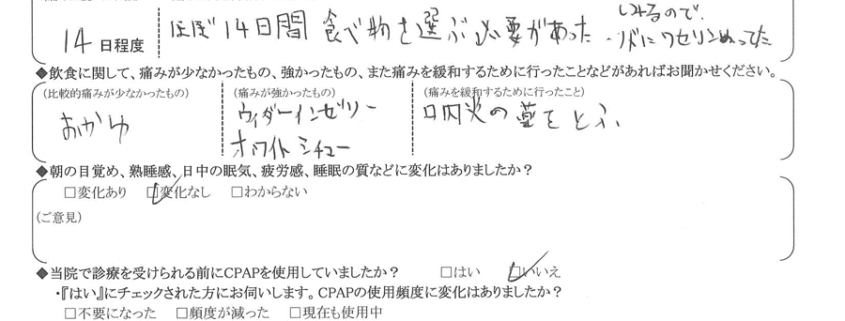 しみるので、
14日程度 ほぼ14日間 食べ物を選ぶ必要があった・リバにワセリンぬってた
◆飲食に関して、痛みが少なかったもの、強かったもの、また痛みを緩和するために行ったことなどがあればお聞かせください。
(比較的痛みが少なかったもの) (痛みが強かったもの) (痛みを緩和するために行ったこと)
おかゆ ウィダーインゼリー 口内炎の薬をとふ
ホワイトシチュー
◆朝の目覚め、熟睡感、日中の眠気、疲労感、睡眠の質などに変化はありましたか？
□変化あり ☑変化なし □わからない
(ご意見)
◆当院で診療を受けられる前にCPAPを使用していましたか？ □はい ☑いいえ
・『はい』にチェックされた方にお伺いします。CPAPの使用頻度に変化はありましたか？
□不要になった □頻度が減った □現在も使用中